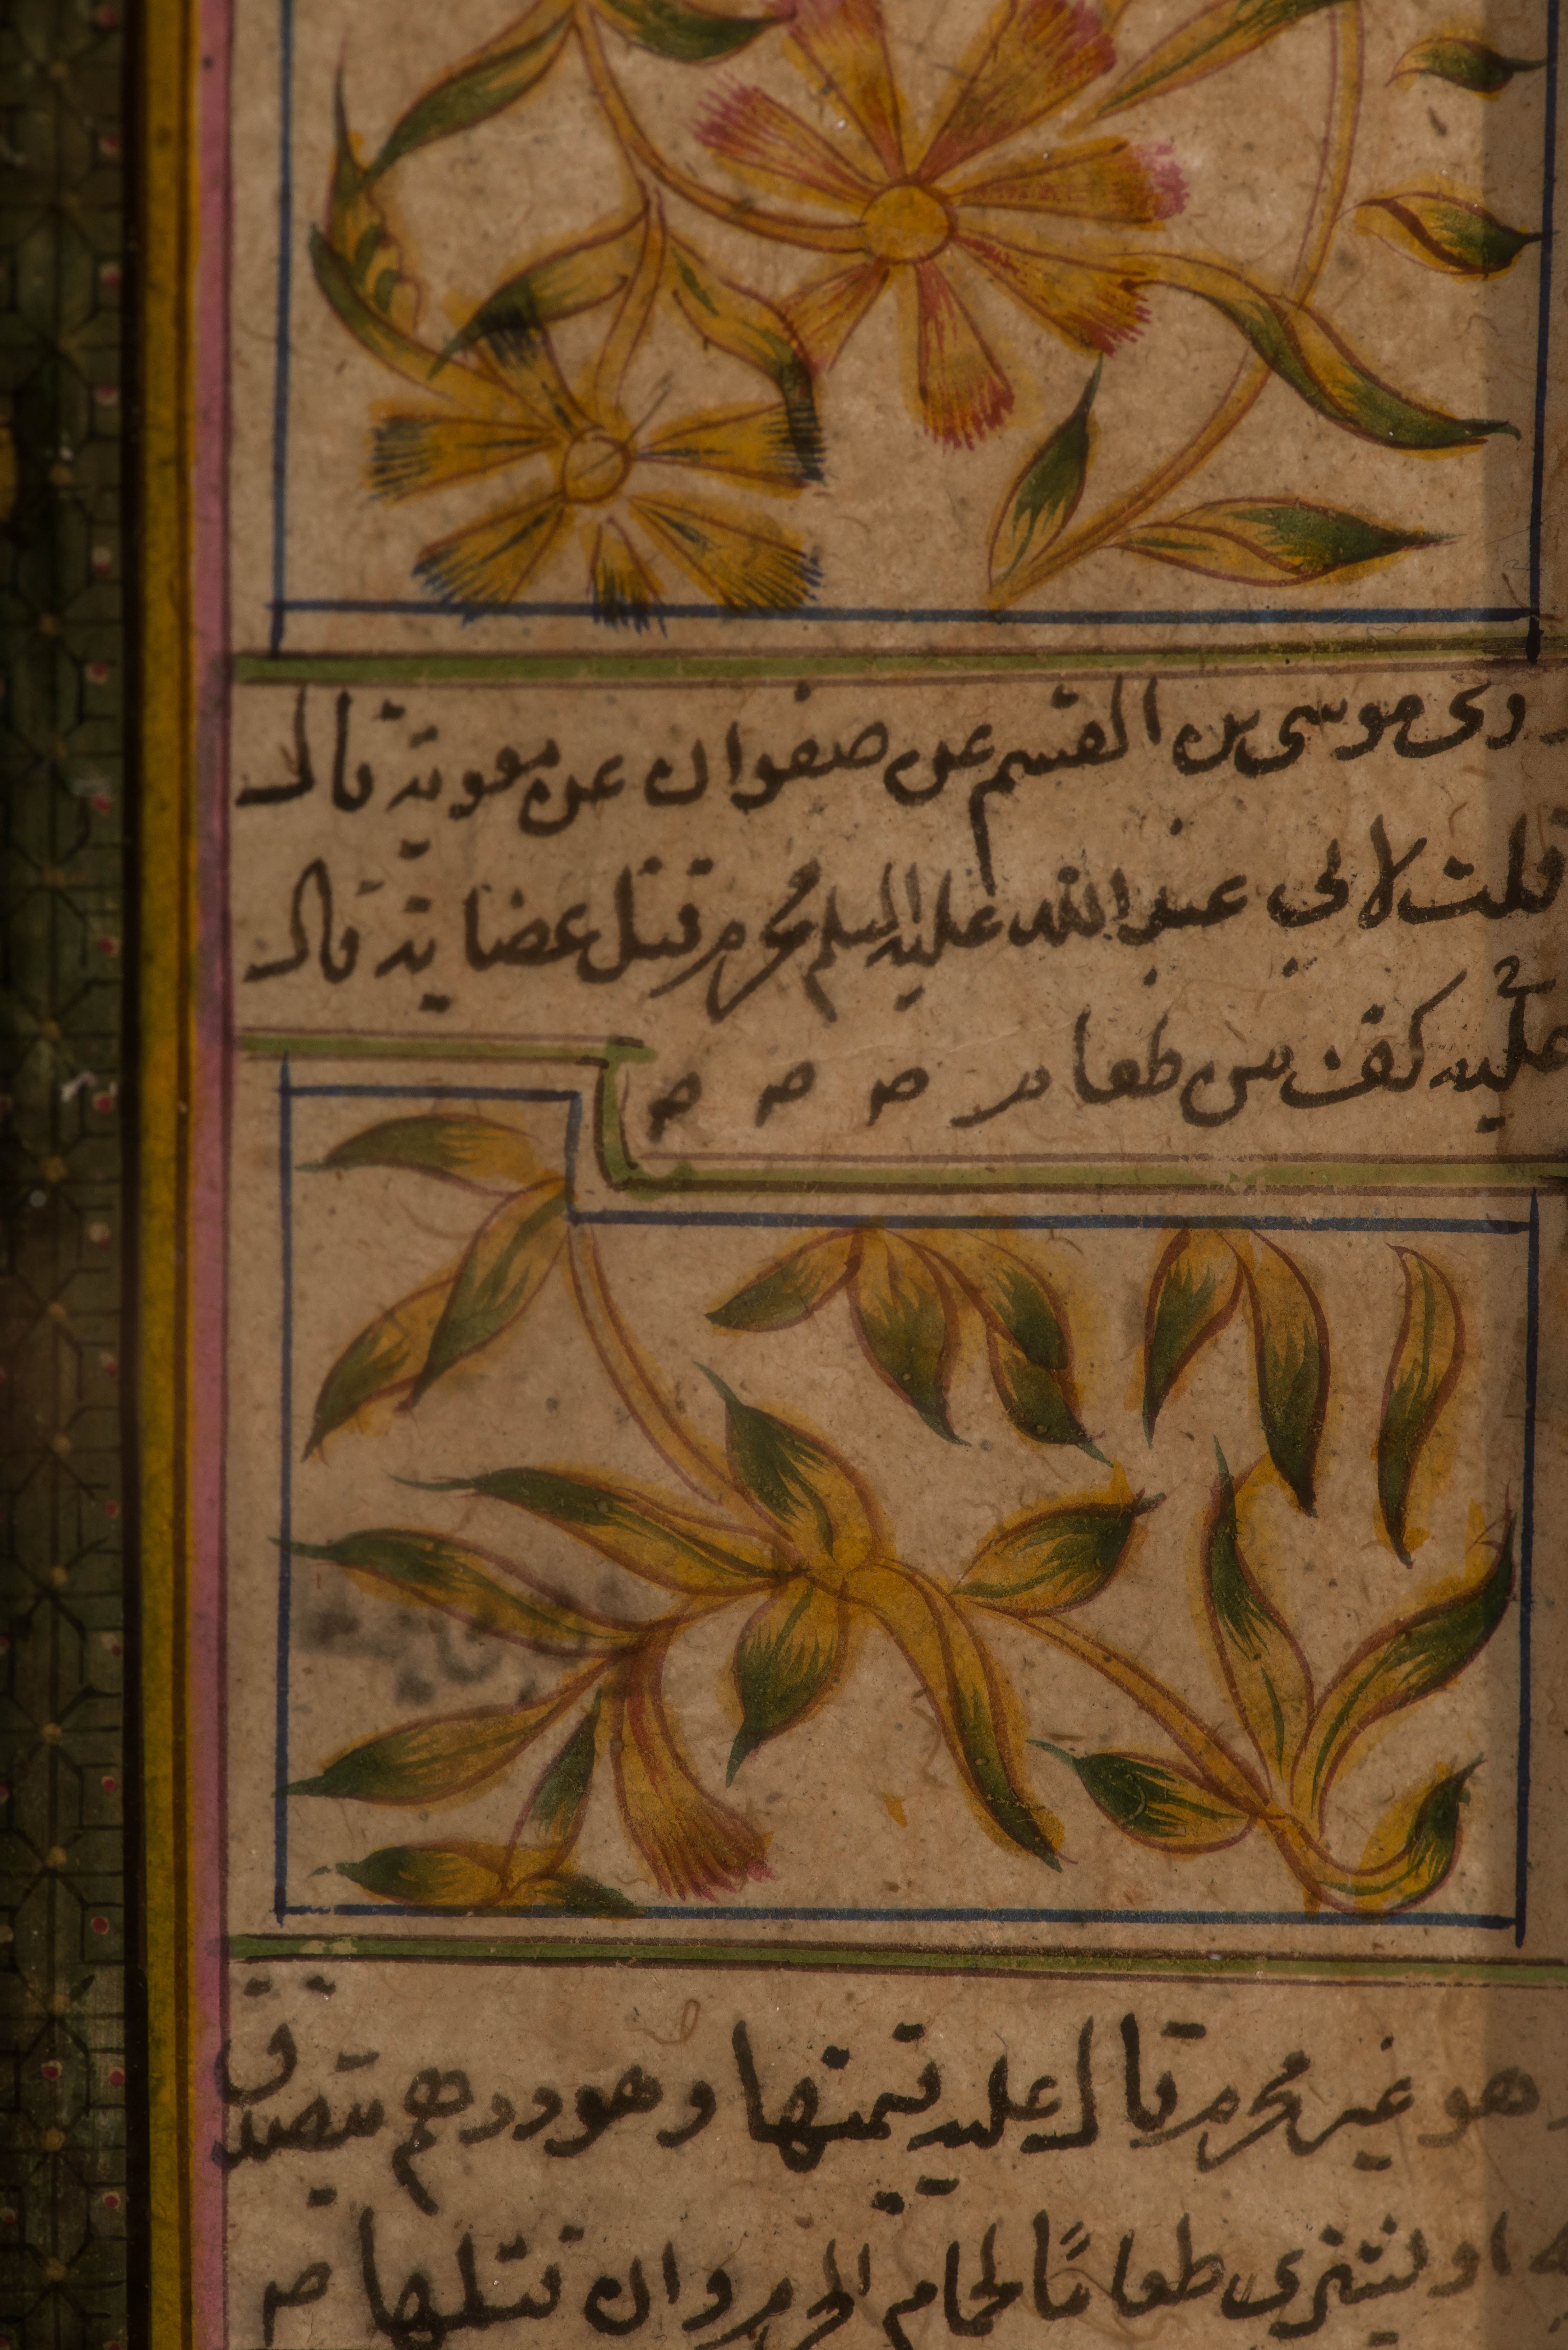 روى موسى بن القسم عن صفوان عن معوية قال
قلت لابي عبد الله عليه السلم محرم قتل عضاية قال
عليه كف من طعام
وهو غير محرم قال عليه قيمتها وهو درهم يتصدق
او يشترى طعامًا لحمام الحرم وان قتلها